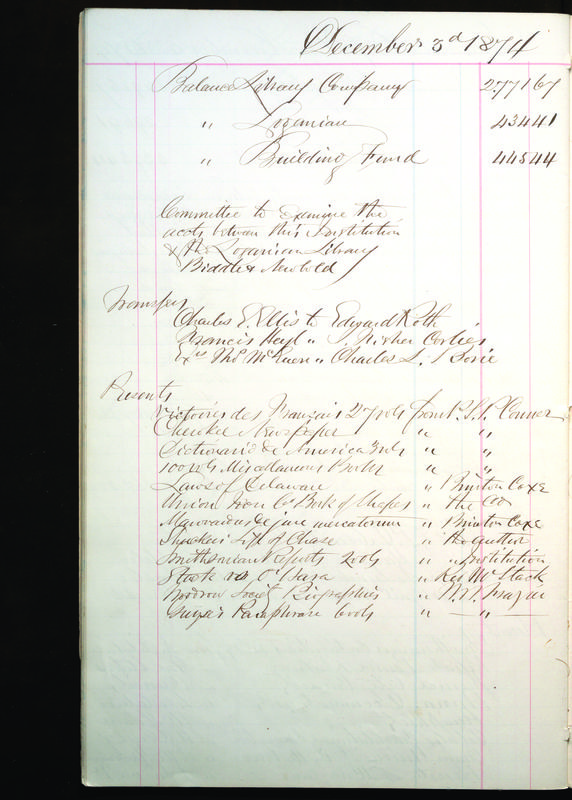 December 3d 1874
Balance Library Company 2771 67
" Loganian 434 41
" Building Fund 445 44
Committee to examine the
accts between this Institution
& the Loganian Library
Biddle & Newbold
Transfers
Charles E. Ellis to Edward Roth
Francis Heyl " J. Fisher Corlies
Exrs Thos McEuen " Charles L. Borie
Presents
Victoires des Français 27 vols from P.S.P. Conner
Cherokee Newspaper " "
Dictionario de America 3 vols " "
100 vols Miscellaneous Books " "
Laws of Delaware " Brinton Coxe
Union Iron Co Book of Shapes " the Co
Marquardus de jure mercatorum " Brinton Coxe
Life of Chase " the author
Smithsonian Reports 2 vols " " Institution
Stack vs O'Hara " Rev Mr Stack
Woodrow Societ Biographies " W.
Guyse's Paraphrase 6 vols " "